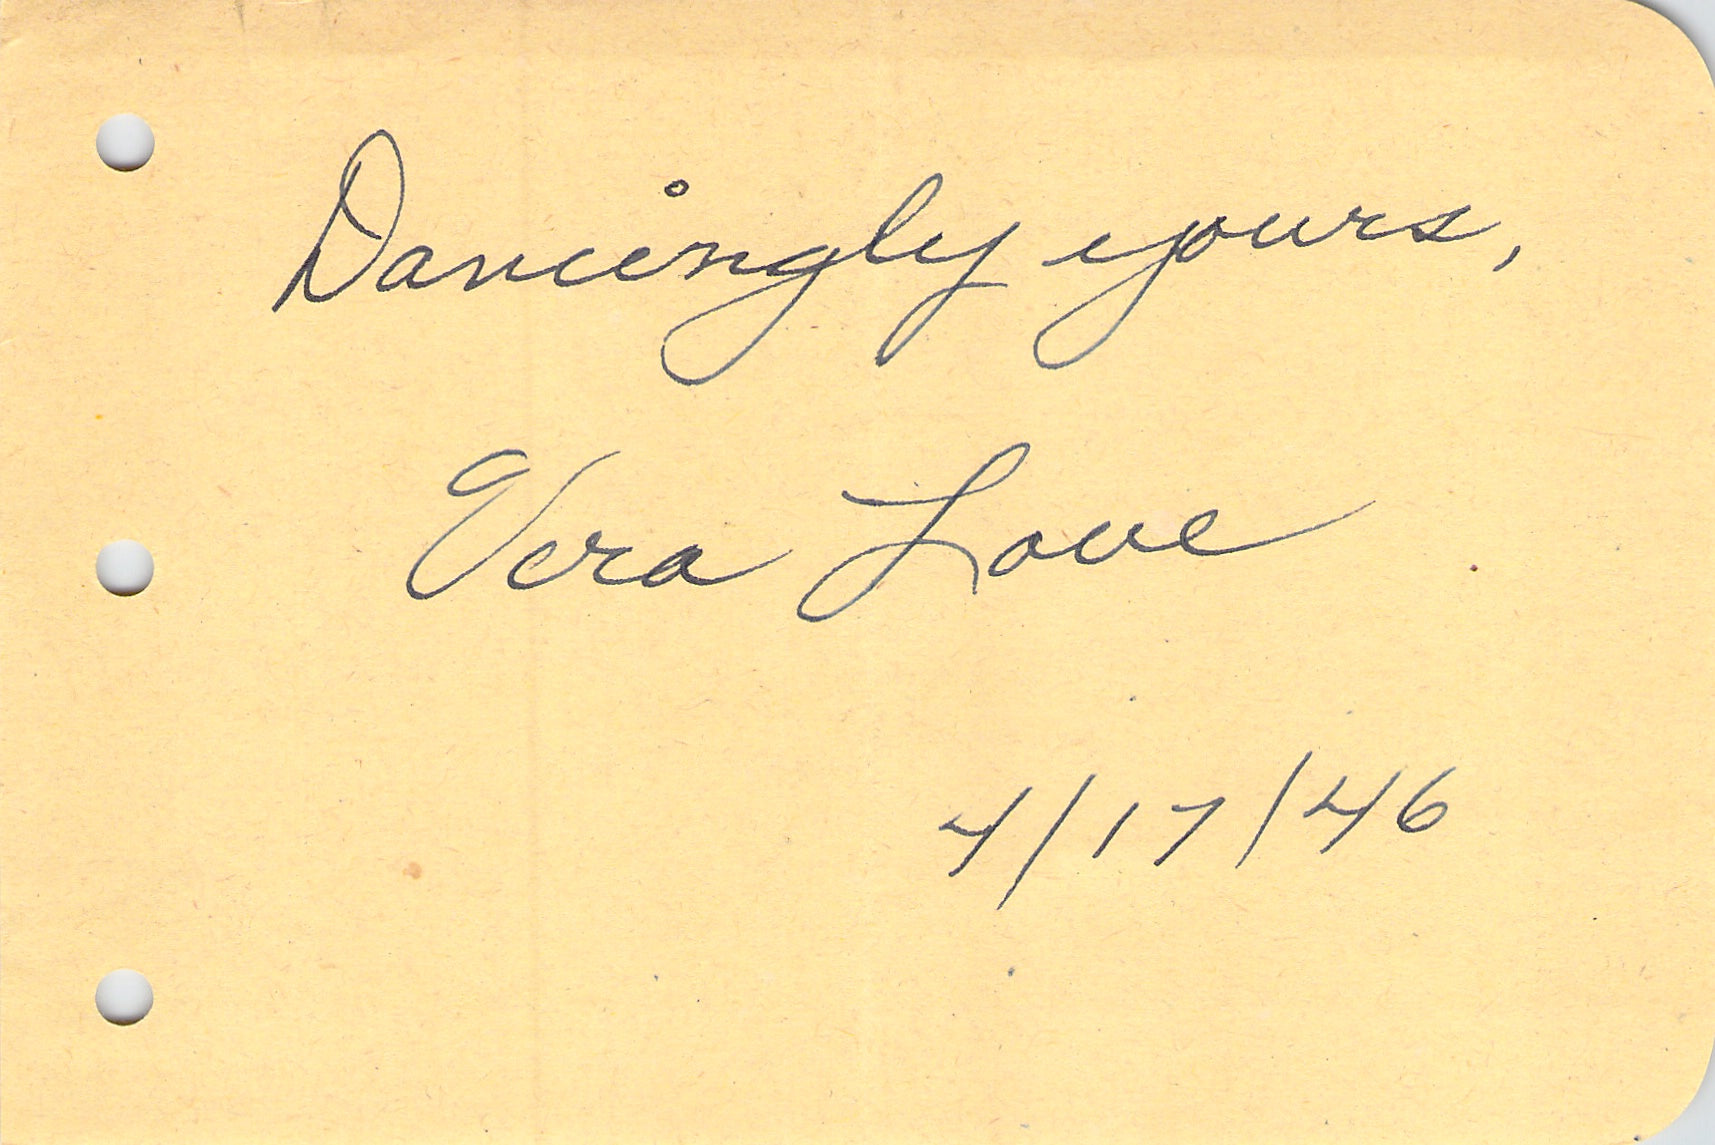 Dancingly yours,
Vera Love
4/17/46